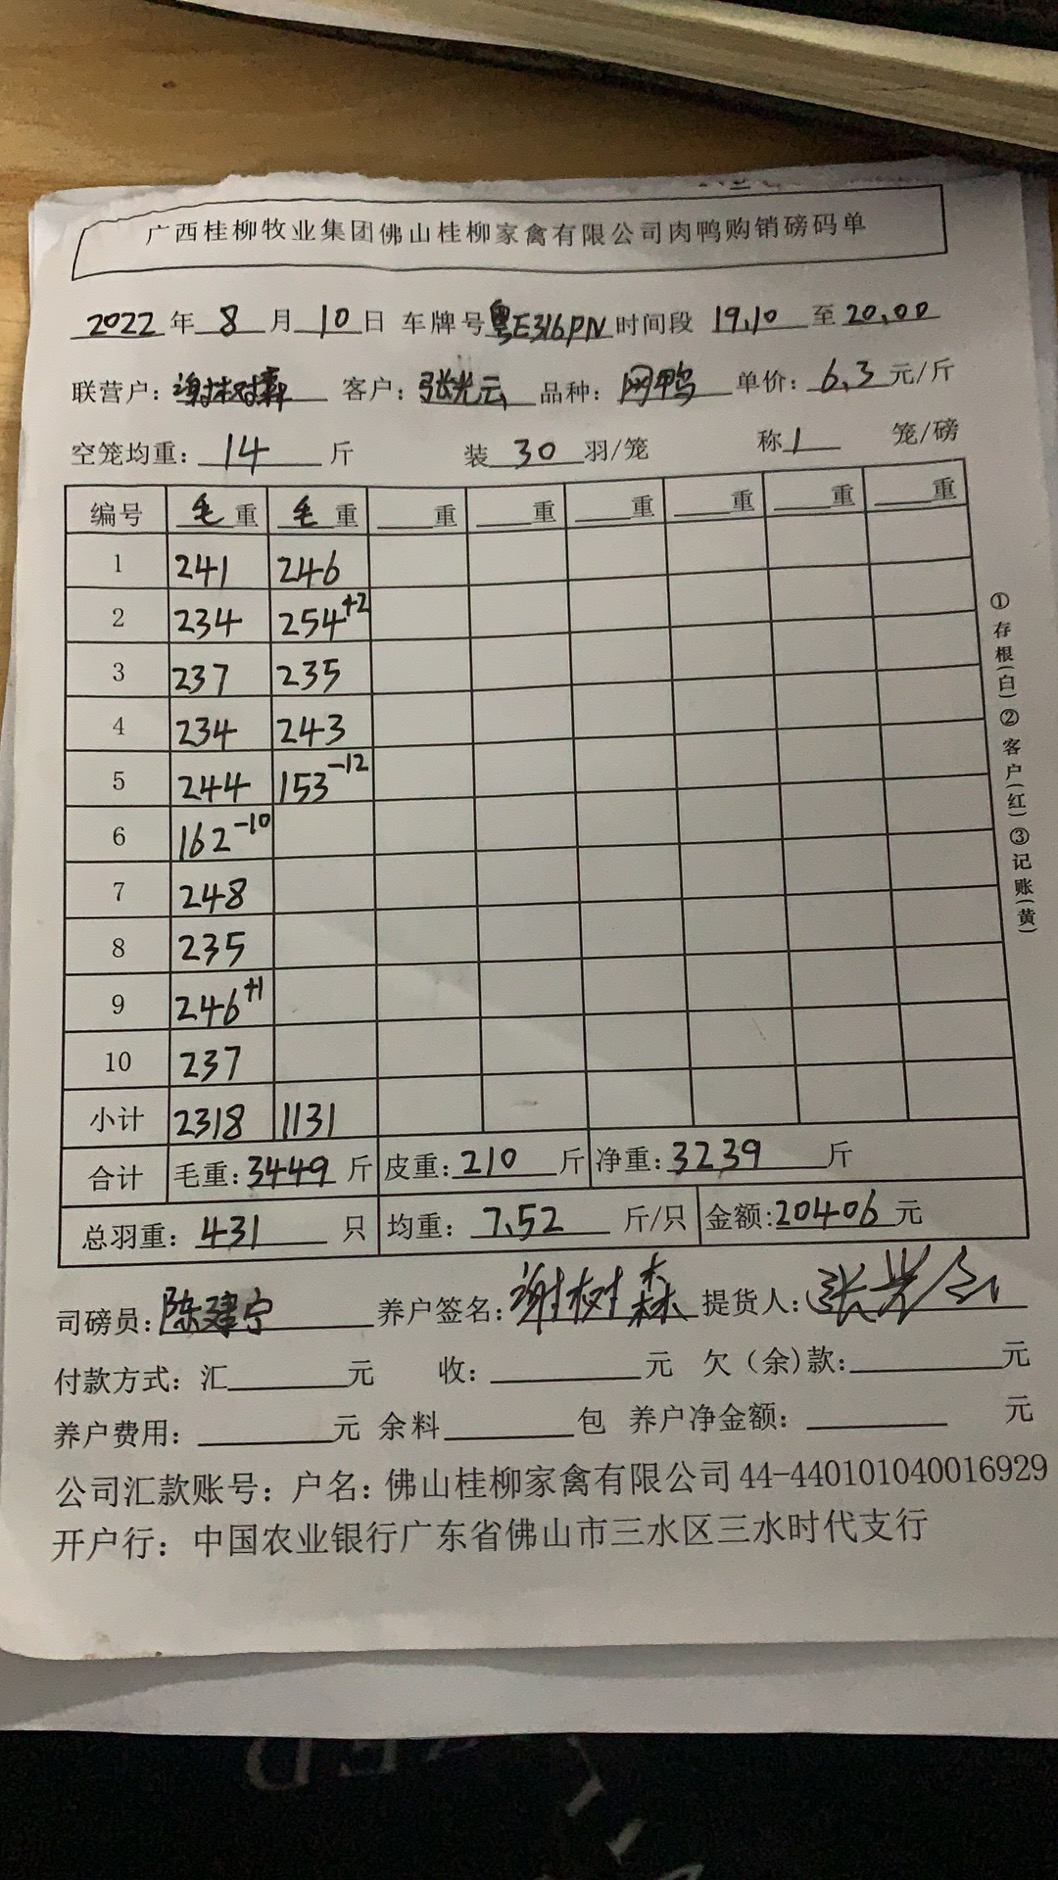 广西桂柳牧业集团佛山桂柳家禽有限公司肉鸭购销磅码单
2022年 8 月 10 日 车牌号粤E316PN时间段 19.10 至 20.00
联营户: 谢树森 客户: 张光云 品种: 网鸭 单价: 6.3 元/斤
空笼均重: 14 斤 装 30 羽/笼 称 1 笼/磅
编号 毛重 毛重 重 重 重 重 重 重
1 241 246
2 234 254+2
3 237 235
4 234 243
5 244 153-12
6 162-10
7 248
8 235
9 246+1
10 237
小计 2318 1131
合计 毛重: 3449 斤 皮重: 210 斤 净重: 3239 斤
总羽重: 431 只 均重: 7.52 斤/只 金额: 20406 元
司磅员: 陈建宁 养户签名: 谢树森 提货人: 张光云
付款方式: 汇 元 收: 元 欠(余)款: 元
养户费用: 元 余料 包 养户净金额: 元
公司汇款账号: 户名: 佛山桂柳家禽有限公司 44-440101040016929
开户行: 中国农业银行广东省佛山市三水区三水时代支行
①存根(白)②客户(红)③记账(黄)